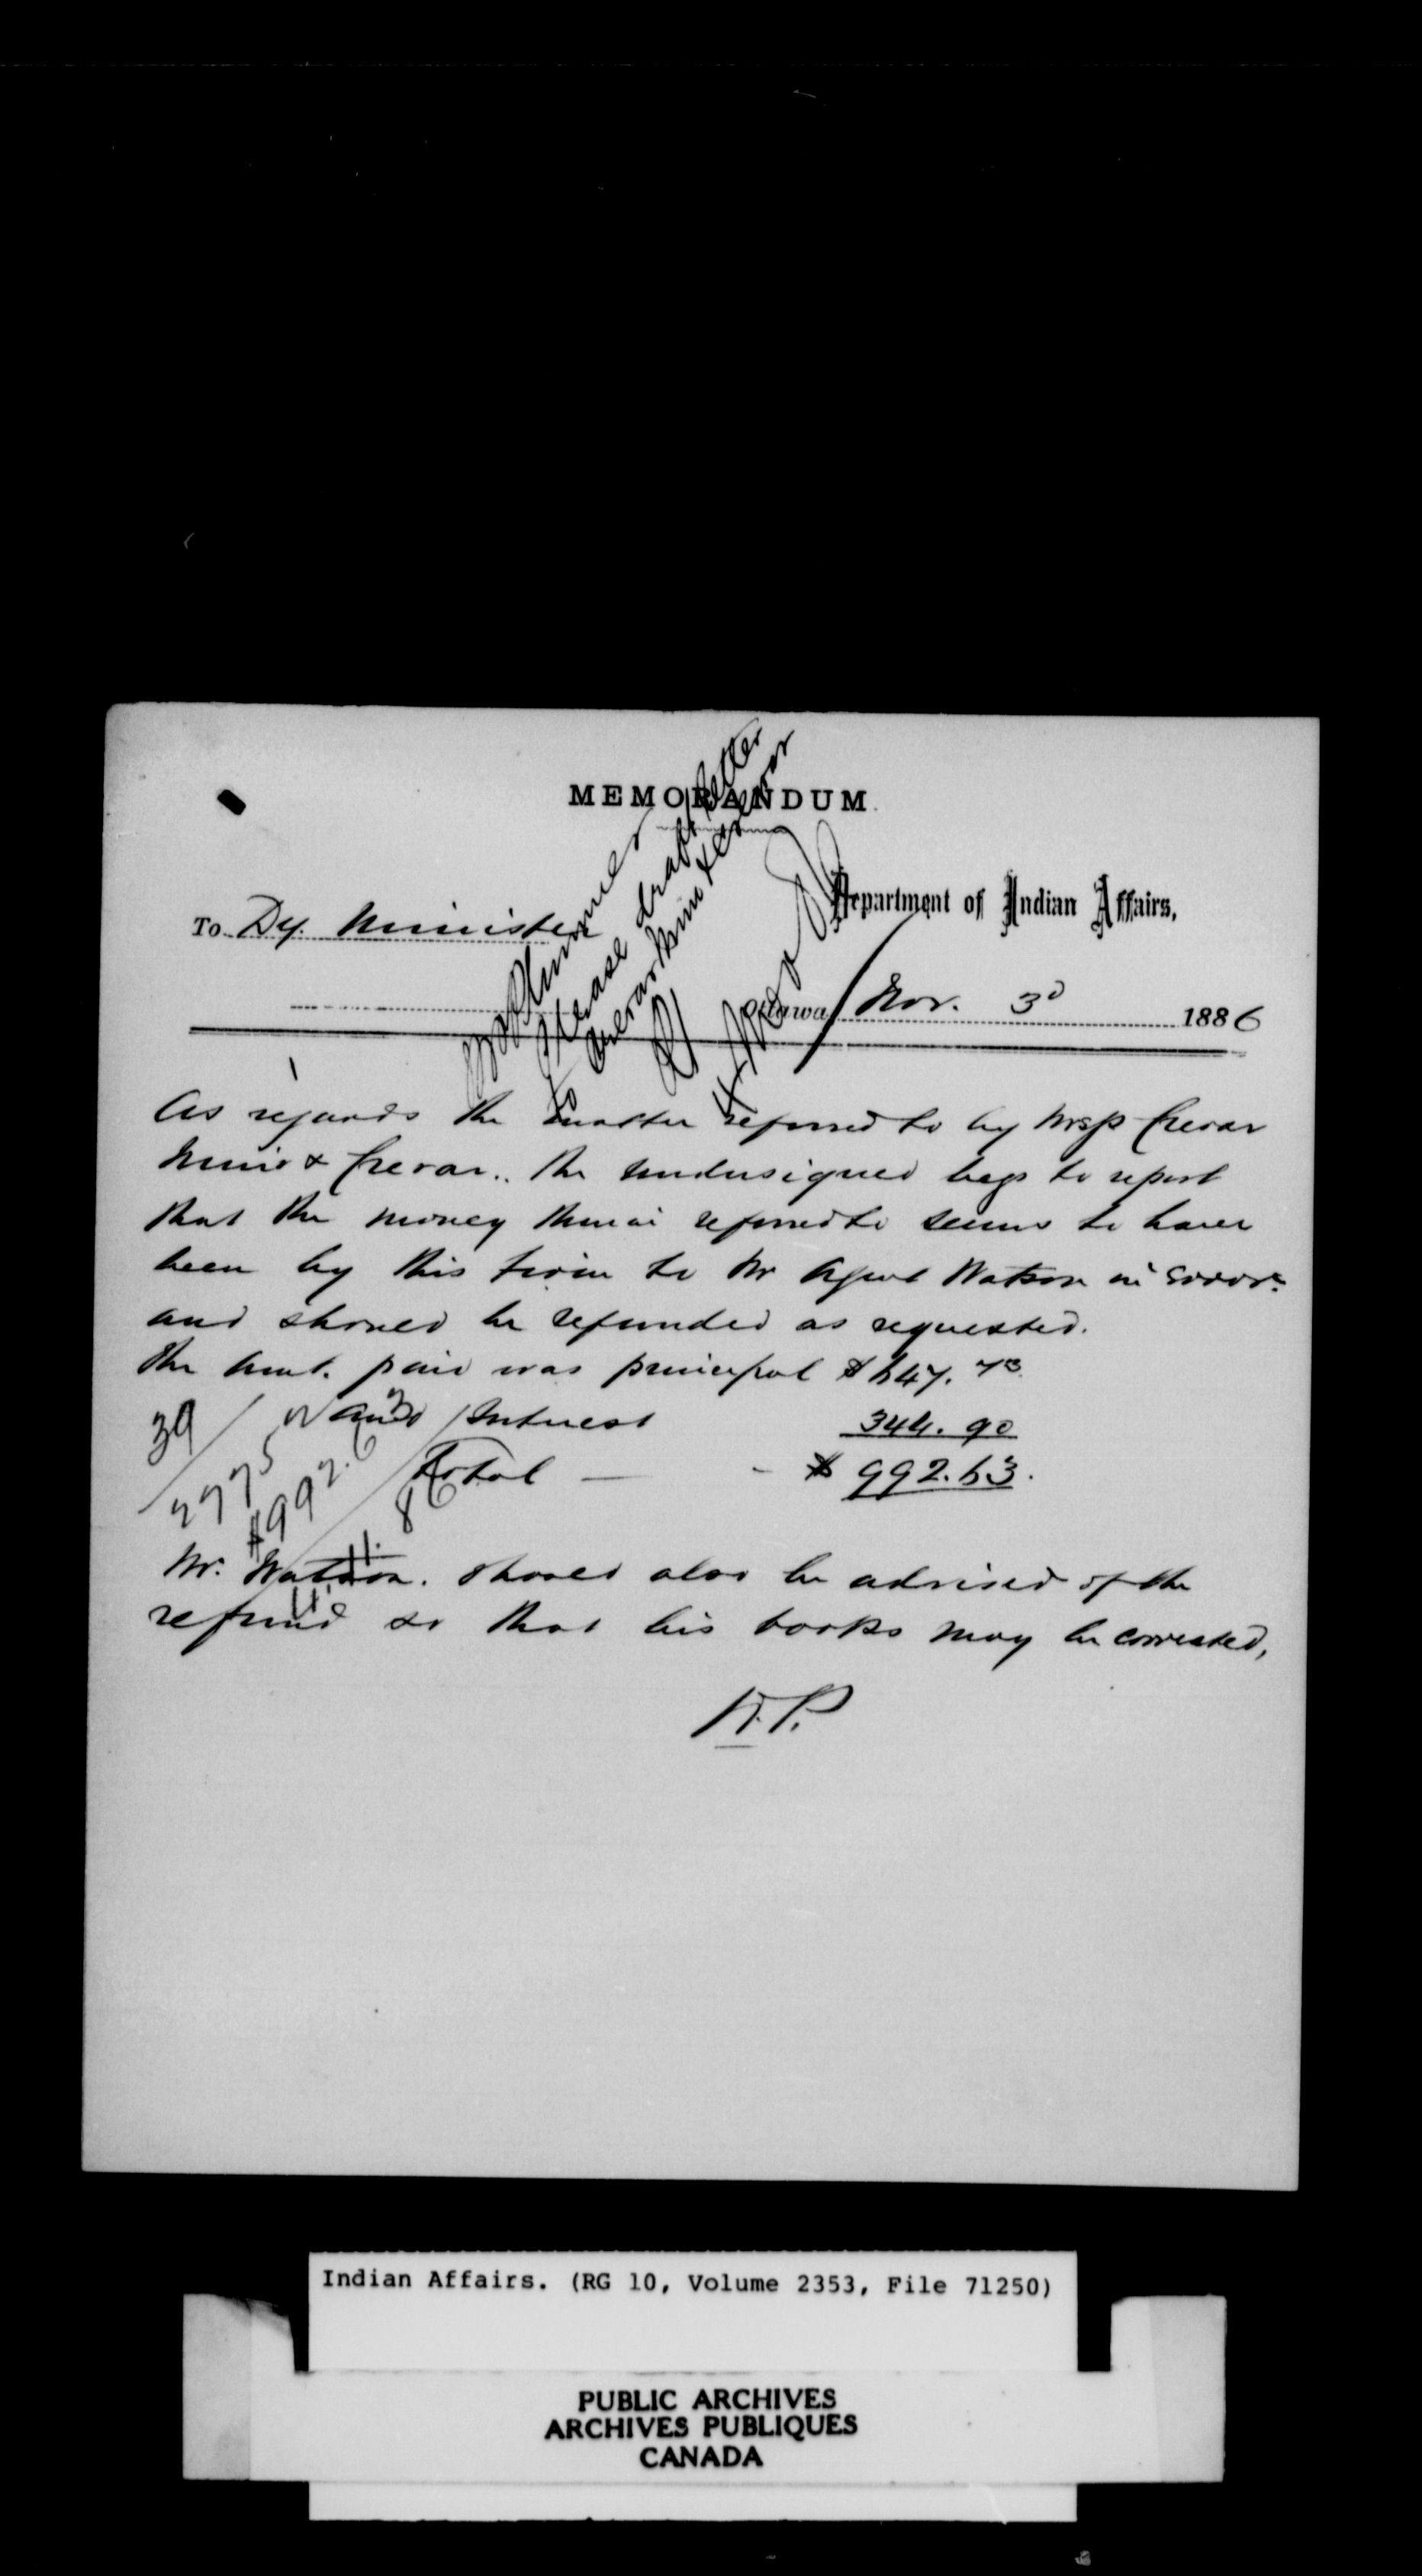 MEMORANDUM
Department of Indian Affairs,
To Dy. Minister
Ottawa Nov. 3d 1886
Mr Plummer
Please draft letter
to Crerar Muir & Crerar
As regards the matter referred to by Messrs Crerar
Muir & Crerar.. the undersigned begs to report
that the money therein referred to seems to have
been by this firm to Mr Agent Watson in error.
and should be refunded as requested.
The amt. paid was principal $647.73
and Interest 344.90
Total — - $992.63.
39
2775
$992.63
11.11.86
Mr. Watson. should also be advised of the
refund so that his books may be corrected,
K.P.
Indian Affairs. (RG 10, Volume 2353, File 71250)
PUBLIC ARCHIVES
ARCHIVES PUBLIQUES
CANADA